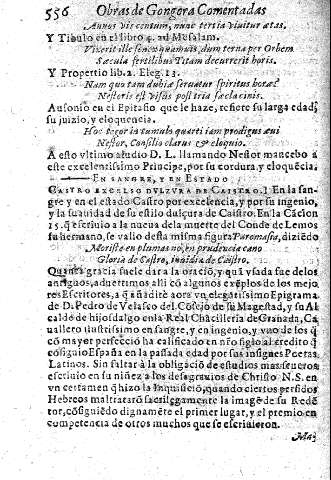 556 Obras de Gongora Comentadas
Annos vis centum, nunc tertia vivitur ætas,
Y Tibulo en el libro 4. ad Mesalam.
Vixerit ille senex quamuis, dum terna per Orbem
Sæcula fertilibus Titan decurrerit horis.
Y Propertio lib. 2. Eleg. 13.
Nam quo tam dubiæ seruatur spiritus horæ?
Nestoris est visus post tria sæcla cinis.
Ausonio en el Epitafio que le haze, refiere su larga edad,
su juizio, y eloquencia.
Hoc tegor in tumulo quarti iam prodigus æui
Nestor, Consilio clarus & eloquio.
A este vltimo aludio D. L. llamando Nestor mancebo a
este excelentissimo Principe, por su cordura, y eloquẽcia.
EN SANGRE, Y EN ESTADO
CASTRO EXCELSO DULZURA DE CAISTRO.] En la san-
gre, y en el estado Castro por excelencia, y por su ingenio,
y la suauidad de su estilo dulçura de Caistro. En la Cãcion
15. q̃ escriuio a la nueua dela muerte del Conde de Lemos
su hermano, se valio desta misma figura Paromasia, diziẽdo
Moriste en plumas no, en prudencia cano
Gloria de Castro, inuidia de Caistro.
Quanta gracia suele dar a la oraciõ, y quã vsada fue delos
antiguos, aduertimos alli cõ algunos exẽplos de los mejo
res Escritores, a q̃ añadirè aora vn elegãtissimo Epigrama
de D. Pedro de Velasco del Cõsejo de su Magestad, y su Al
calde de hijosdalgo en la Real Chãcilleria de Granada, Ca
uallero ilustrissimo en sangre, y en ingenio, y vno de los q̃
cõ mayor perfecciõ ha calificado en nr̃o siglo al crédito q̃
cõsiguio España en la passada edad por sus insignes Poetas
Latinos. Sin faltar à la obligaciõ de estudios mas seueros
escriuio en su niñez a los desagrauios de Christo N. S. en
vn certamen q̃ hizo la Inquisiciõ, quando ciertos perfidos
Hebreos maltratarõ sacrilegamente la image de su Redẽ
tor, cõsiguiẽdo dignamẽte el primer lugar, y el premio en
competencia de otros muchos que se escriuieron.
Mas